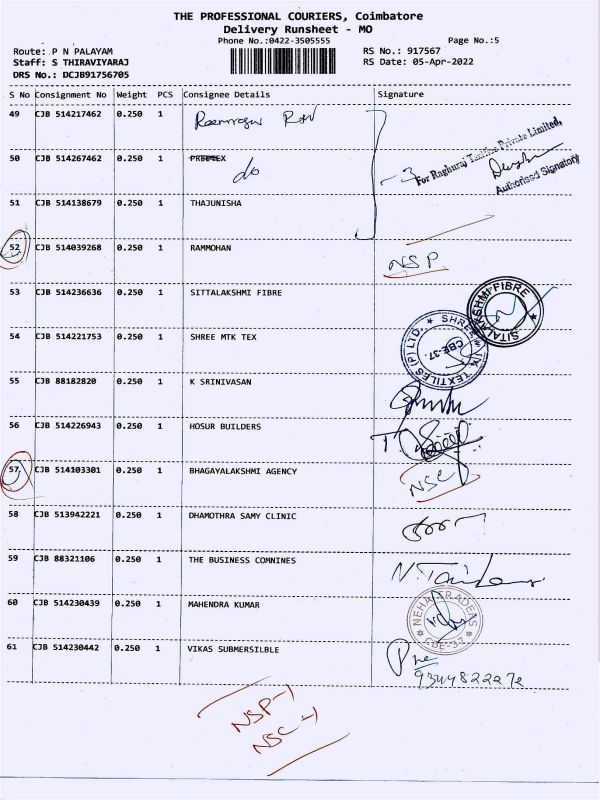 THE PROFESSIONAL COURIERS, Coimbatore
Delivery Runsheet - MO
Phone No.:0422-3505555
Page No.:5
Route: P N PALAYAM
RS No.: 917567
Staff: S THIRAVIYARAJ
RS Date: 05-Apr-2022
DRS No.: DCJB91756705
S No Consignment No Weight PCS Consignee Details Signature
49 CJB 514217462 0.250 1
50 CJB 514267462 0.250 1 do
For Raghuraj Textfre Private Limited,
Authorised Signatory
51 CJB 514138679 0.250 1 THAJUNISHA
52 CJB 514039268 0.250 1 RAMMOHAN NSP
53 CJB 514236636 0.250 1 SITTALAKSHMI FIBRE SITALAKSHMI FIBRE
54 CJB 514221753 0.250 1 SHREE MTK TEX CBE-37.
55 CJB 88182820 0.250 1 K SRINIVASAN
56 CJB 514226943 0.250 1 HOSUR BUILDERS
57 CJB 514103301 0.250 1 BHAGAYALAKSHMI AGENCY NSC
58 CJB 513942221 0.250 1 DHAMOTHRA SAMY CLINIC
59 CJB 88321106 0.250 1 THE BUSINESS COMNINES
60 CJB 514230439 0.250 1 MAHENDRA KUMAR NEHA TRADENS CBE-37
61 CJB 514230442 0.250 1 VIKAS SUBMERSILBLE
NSP-1
NSC-1